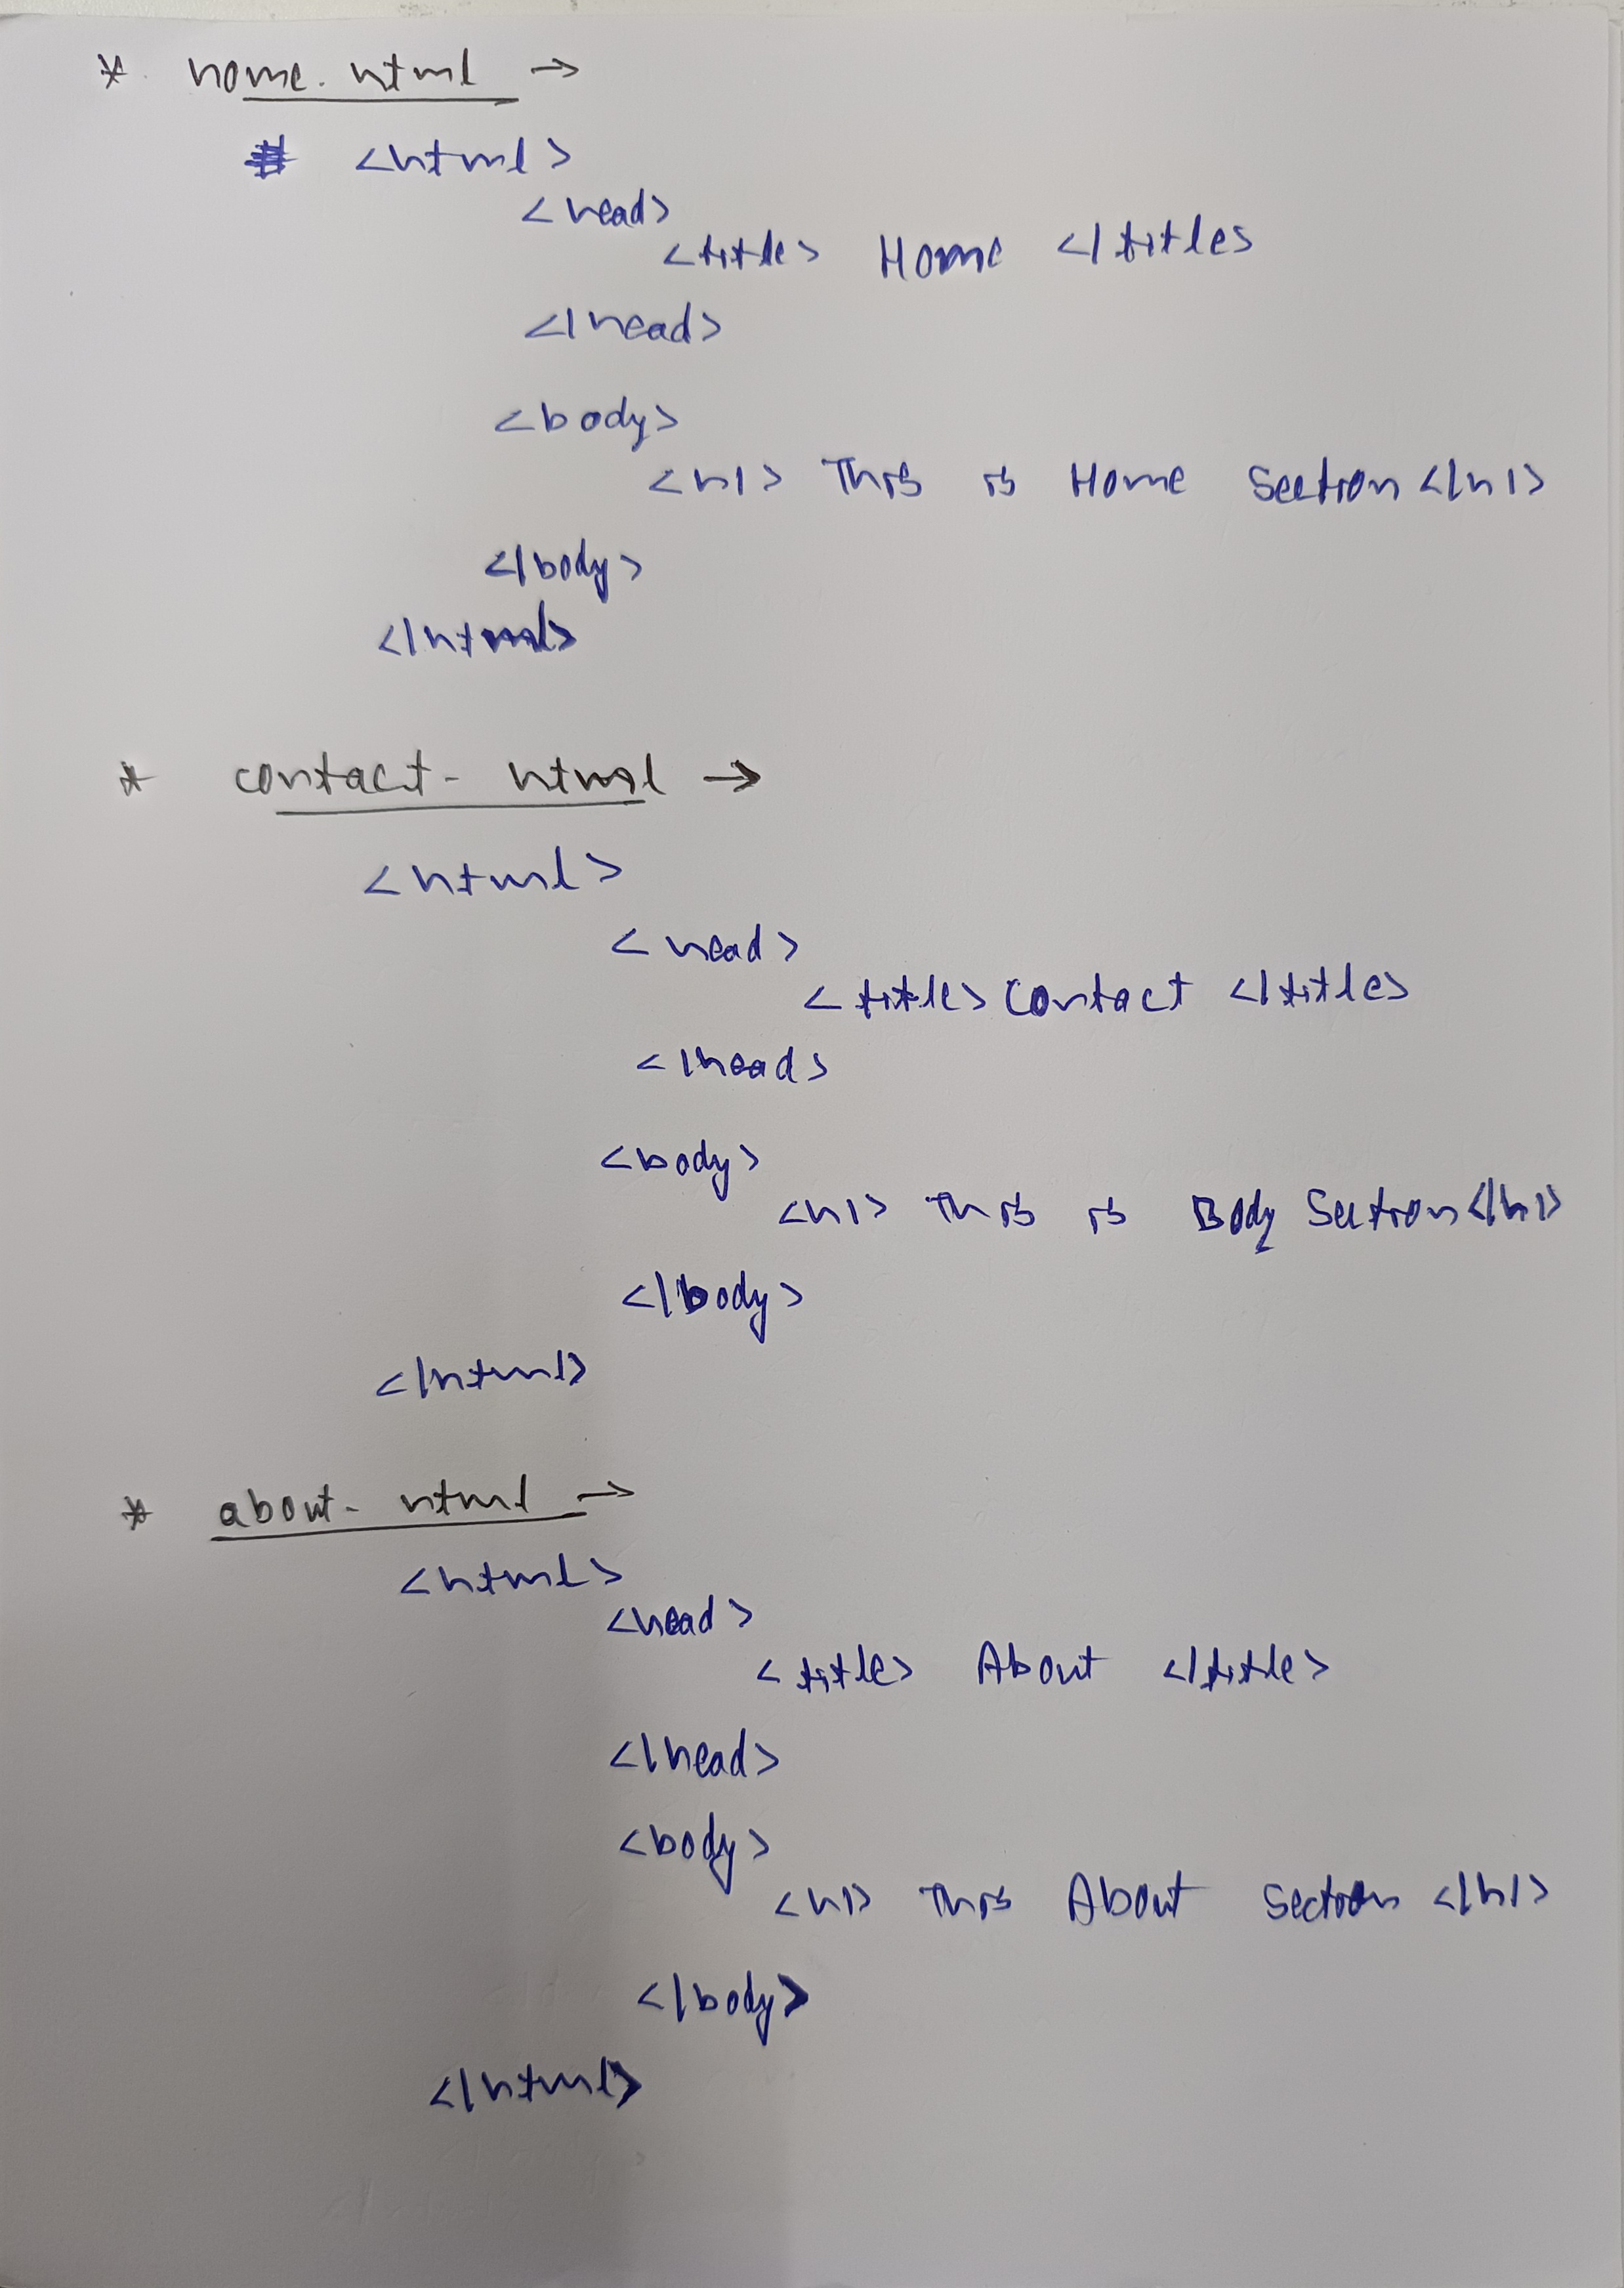 * home.html →
<html>
<head>
<title> Home </title>
</head>
<body>
<h1> This is Home Section </h1>
</body>
</html>
* contact.html →
<html>
<head>
<title> Contact </title>
</head>
<body>
<h1> This is Body Section </h1>
</body>
</html>
* about.html →
<html>
<head>
<title> About </title>
</head>
<body>
<h1> This About Section </h1>
</body>
</html>